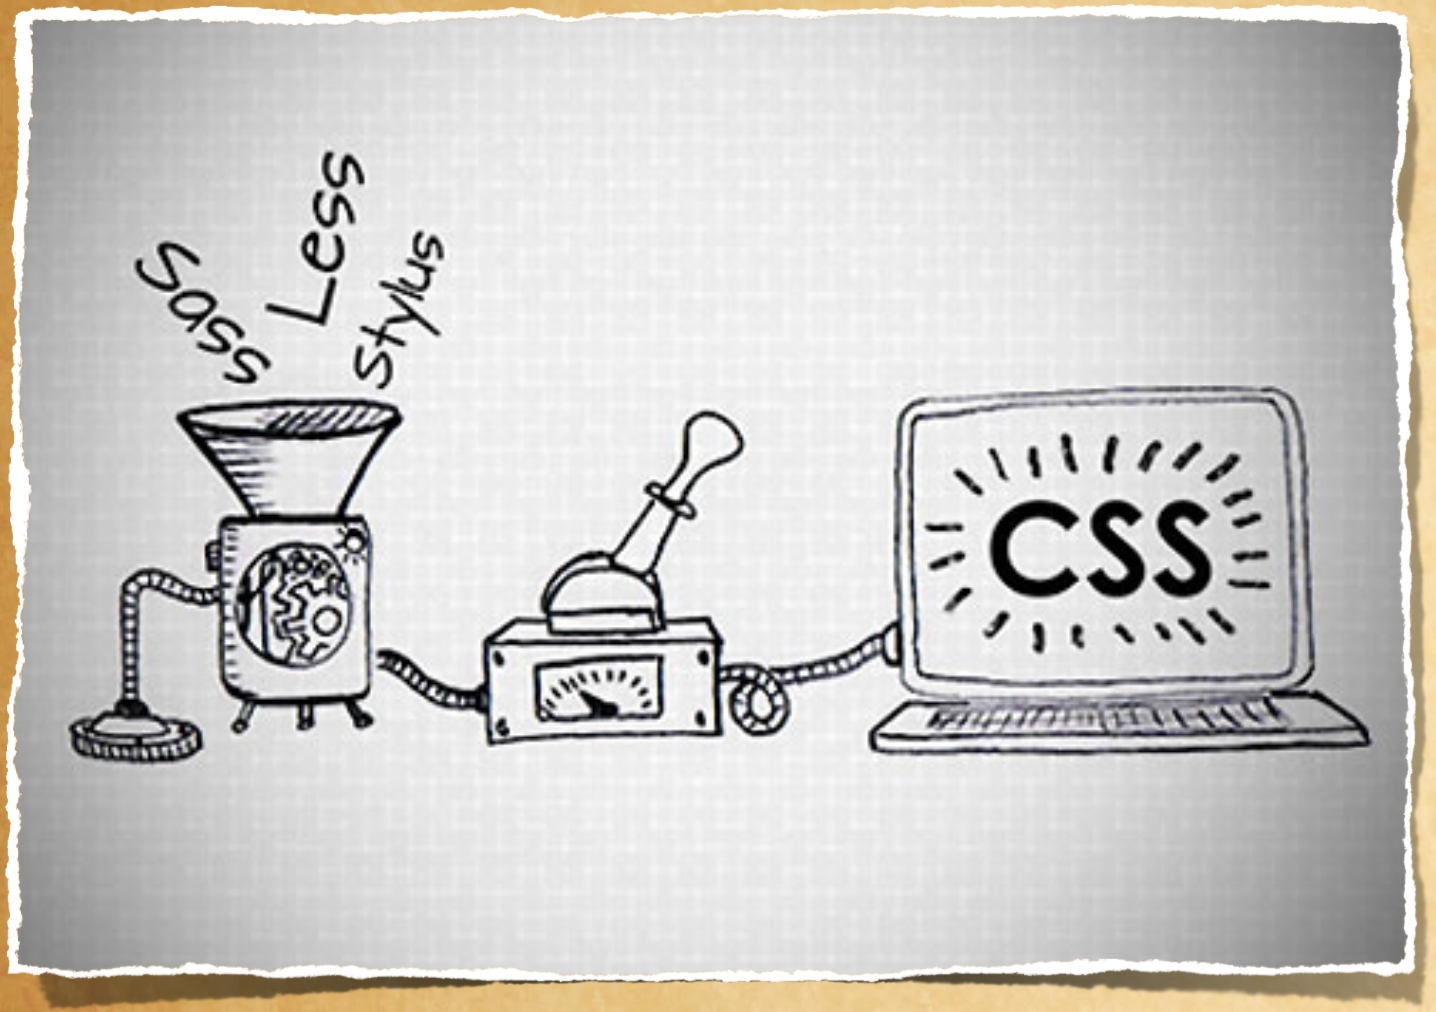 Sass
Less
stylus
CSS